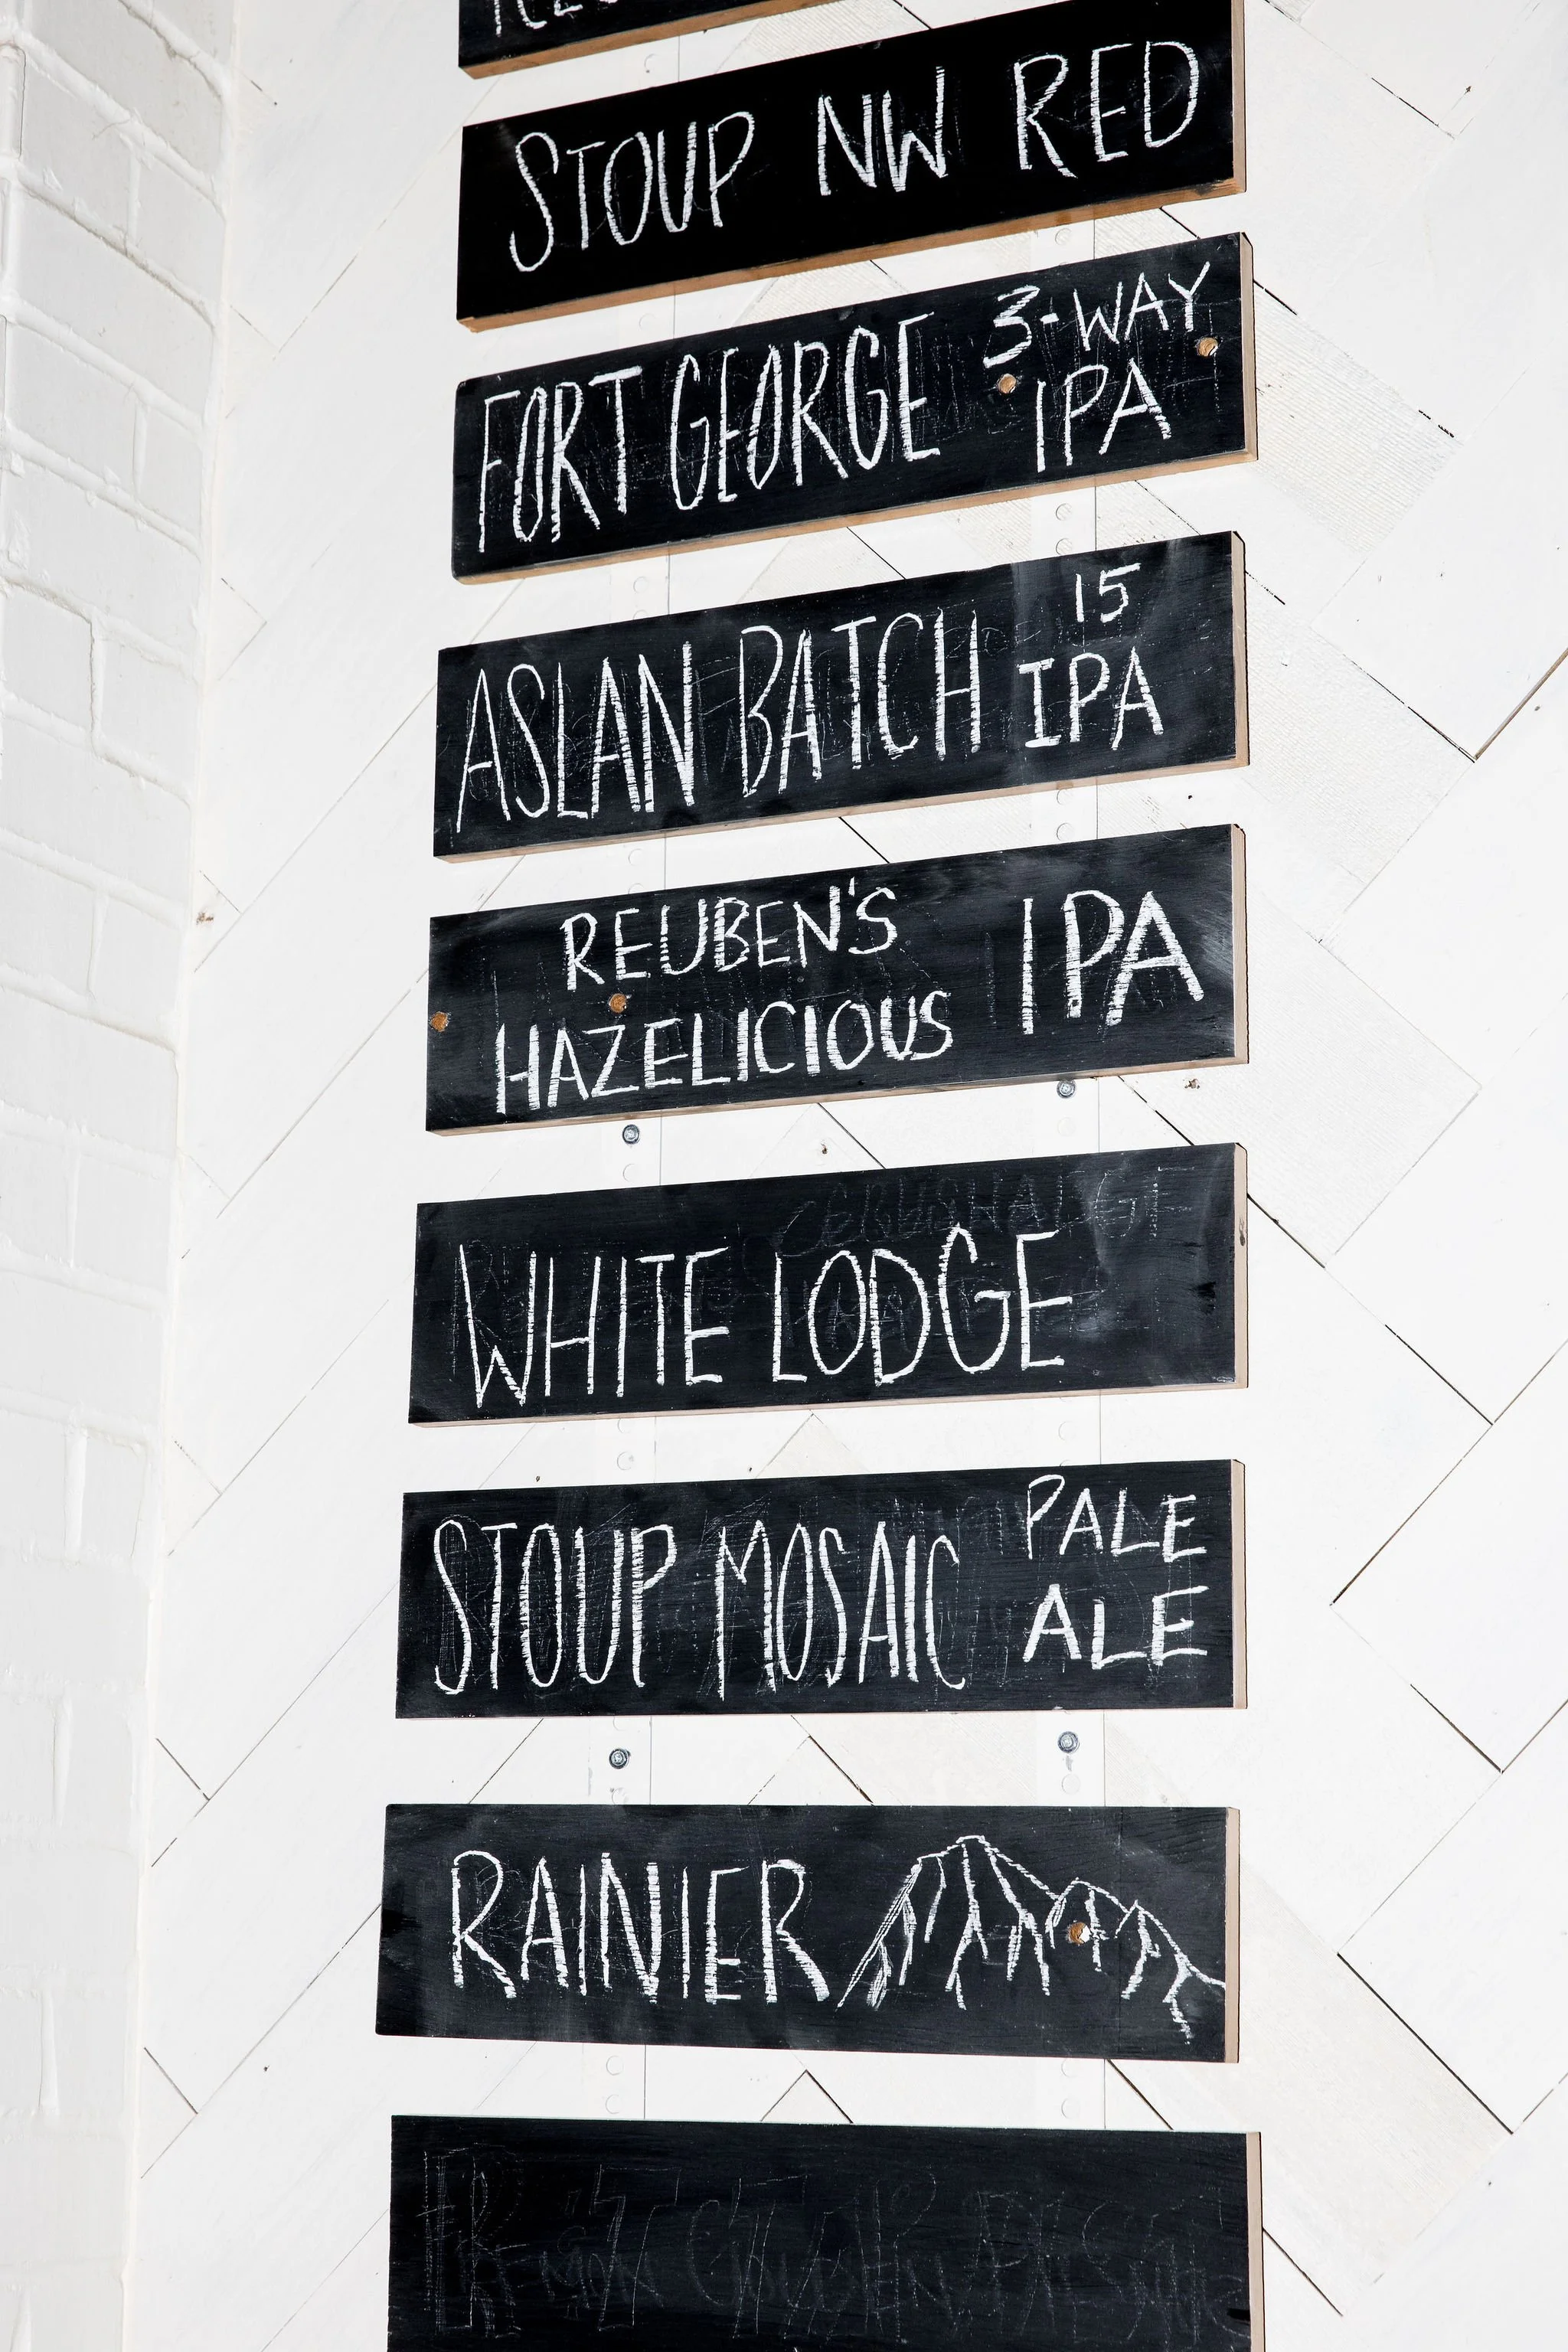 STOUP NW RED
FORT GEORGE 3-WAY
IPA
ASLAN BATCH 15
IPA
REUBEN'S
HAZELICIOUS IPA
WHITE LODGE
STOUP MOSAIC PALE
ALE
RAINIER